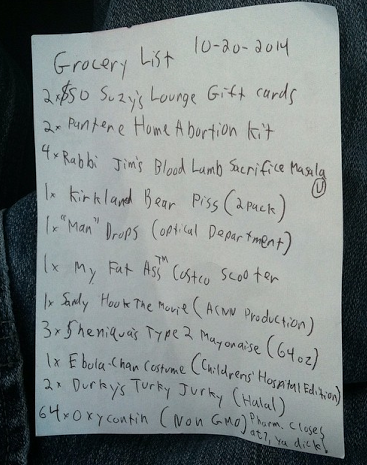 Grocery List 10-20-2014
2x $50 Suzy's Lounge Gift cards
2x Pantene Home Abortion Kit
4x Rabbi Jim's Blood Lamb Sacrifice Masala
U
1x Kirkland Bear Piss (2pack)
1x "Man" Drops (optical Department)
1x My Fat Ass™ Costco Scooter
1x Sandy Hook The Movie (ACNN Production)
3x Sheniqua's Type 2 Mayonaise (64oz)
1x Ebola-Chan Costume (Childrens' Hospital Edition)
2x Durky's Turky Jurky (Halal)
64x Oxycontin (Non GMO) Pharm. Closes
at 7, ya dick!